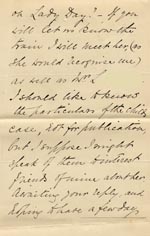 on Lady Day? - If you
will let me know the
train I will meet her (as
she would recognise me)
as well as
I should like to know
the particulars of the child's
case, not for publication,
but I suppose I might
speak of them to interest
friends of mine also
Awaiting your reply, and
hoping to have a few days